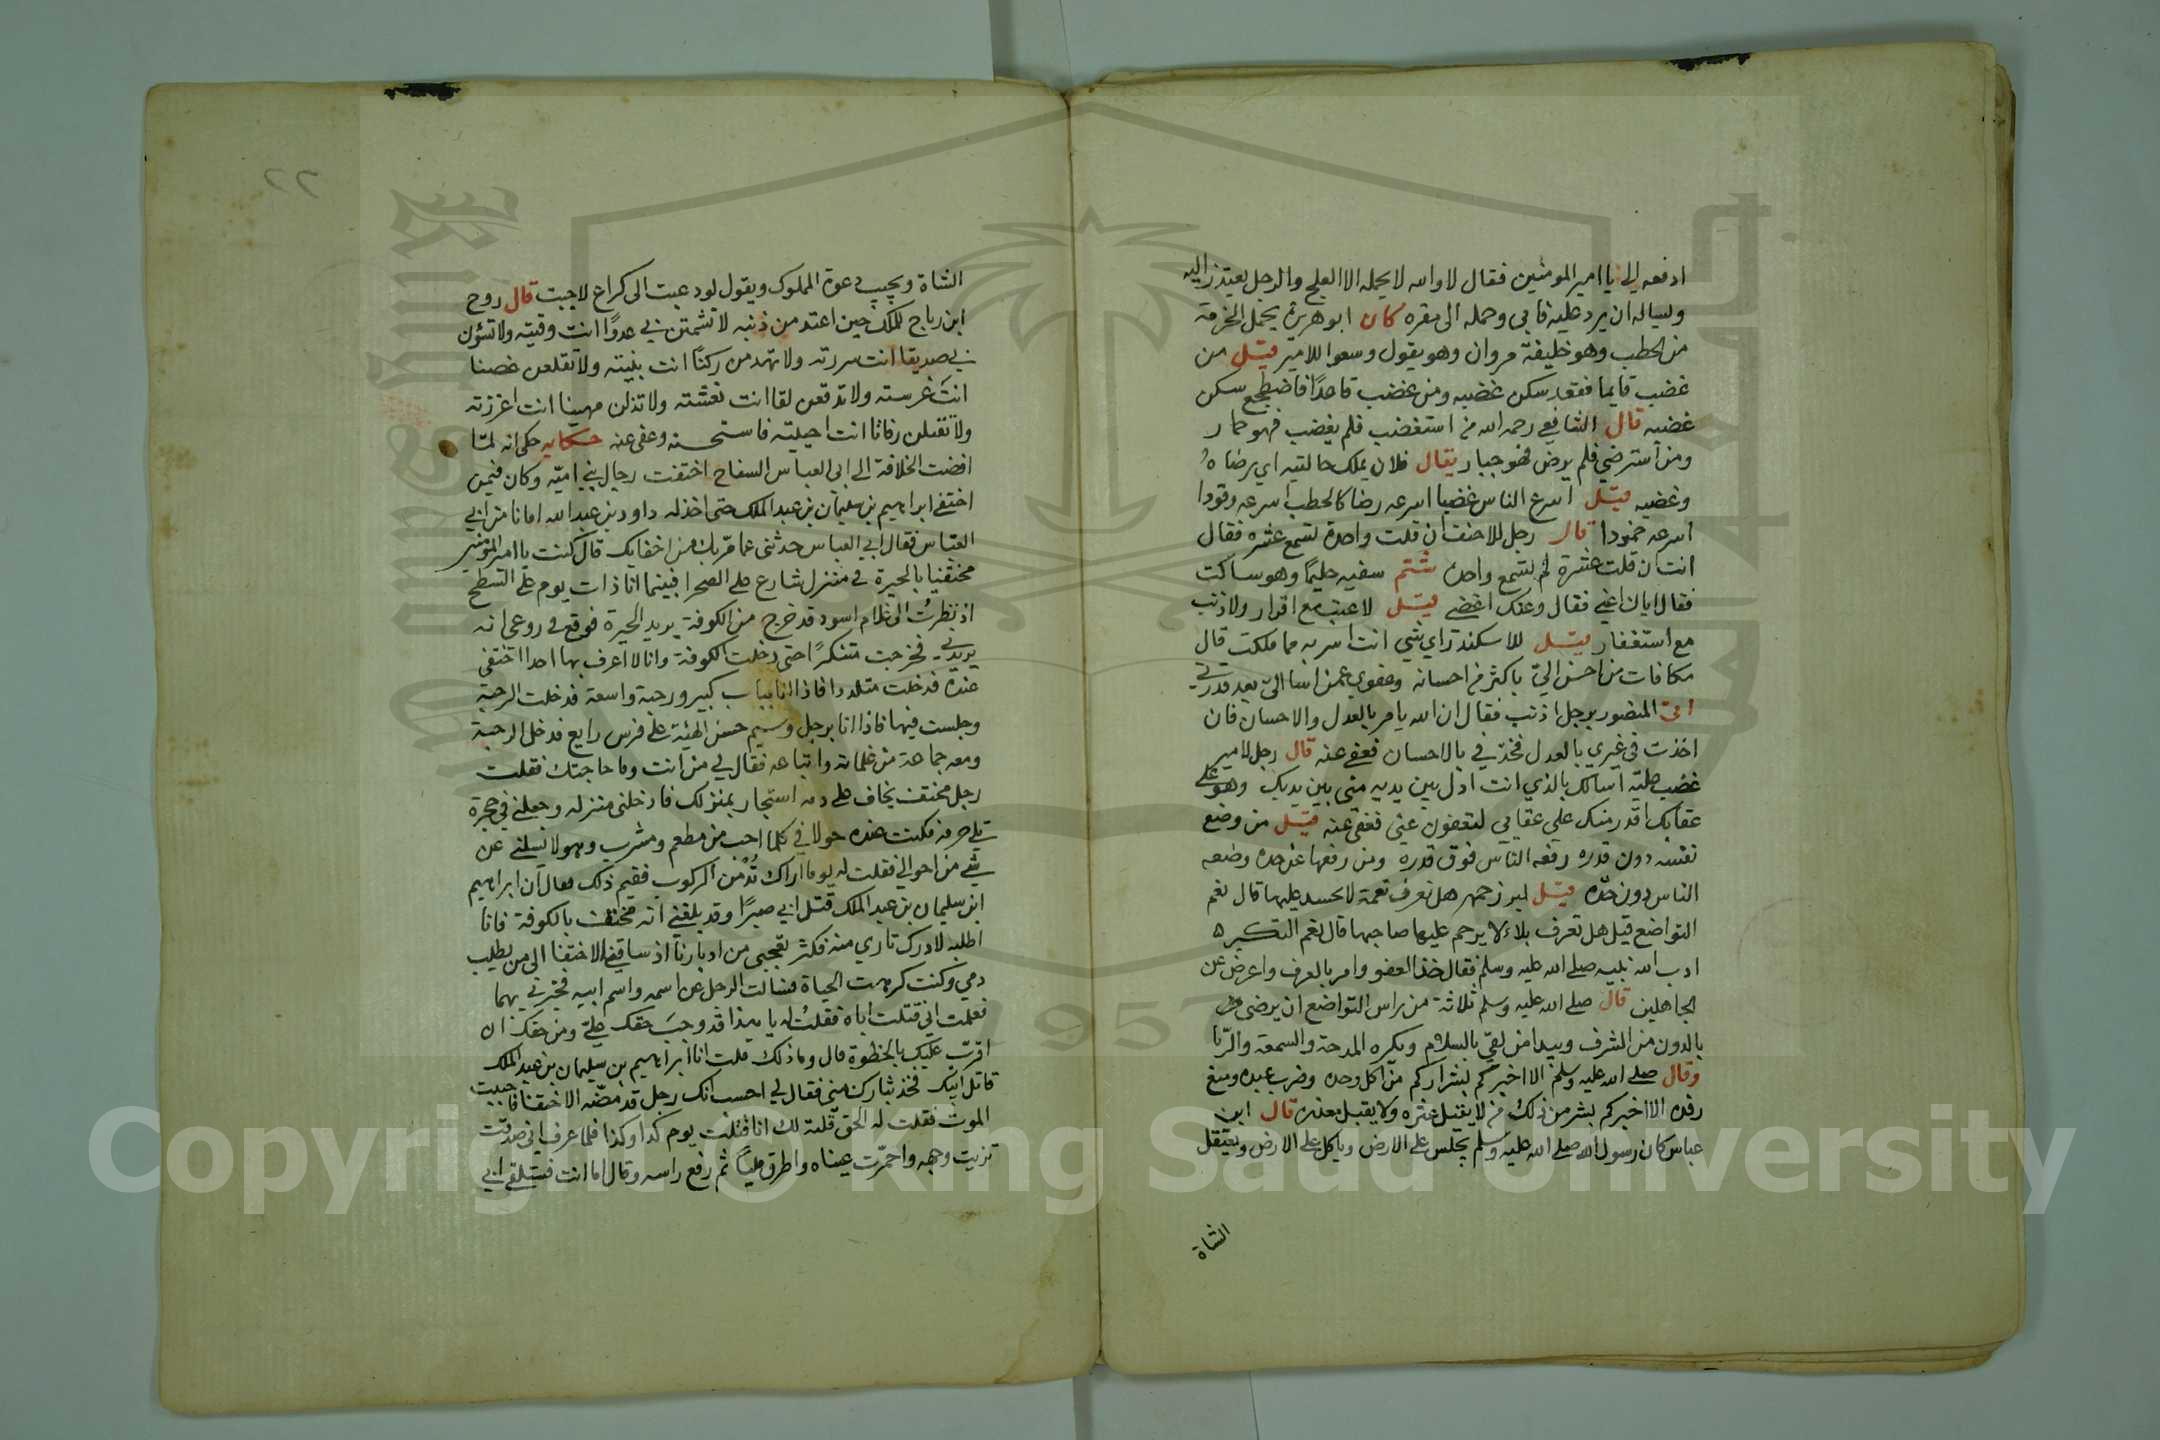 ادفعه الي يا امير المومنين فقال لا والله لا يحمله الا العلج والرجل يعتذر اليه
ويساله ان يرد عليه فابى وحمله الى مقره كان ابو هريرة يحمل الحزمة
من الحطب وهو خليفة مروان وهو يقول وسعوا للامير قيل من
غضب قايما فقعد سكن غضبه ومن غضب قاعدا فاضطجع سكن
غضبه قال الشافعي رحمه الله من استغضب فلم يغضب فهو حمار
ومن استرضي فلم يرض فهو جبار يقال فلان يملك حالتيه اي رضاه
وغضبه قيل اسرع الناس غضبا اسرعه رضا كالحطب اسرعه وقودا
اسرعه خمودا قال رجل للاحنف ان قلت واحدة لتسمع عشره فقال
انت ان قلت عشرة لم تسمع واحدة شتم سفيه حليما وهو ساكت
فقال اياك اعني فقال وعنك اغضي قيل لا عتب مع اقرار ولا ذنب
مع استغفار قيل للاسكندر اي شي انت اسر به مما ملكت قال
مكافات من احسن الي باكثر من احسانه وعفوي عمن اسا الي بعد قدرتي
اتى المنصور برجل اذنب فقال ان الله يامر بالعدل والاحسان فان
اخذت في غيري بالعدل فخذ في بالاحسان فعفى عنه قال رجل لامير
غضب عليه اسالك بالذي انت اذل بين يديه مني بين يديك وهو على
عقابك اقدر منك على عقابي لتعفون عني فعفى عنه قيل من وضع
نفسه دون قدره رفعه الناس فوق قدره ومن رفعها عن حده وضعه
الناس دون حده قيل لبزرجمهر هل تعرف نعمة لا يحسد عليها قال نعم
التواضع قيل هل تعرف بلاء لا يرحم عليها صاحبها قال نعم التكبر ه
ادب الله نبيه صلى الله عليه وسلم فقال خذ العفو وامر بالعرف واعرض عن
الجاهلين قال صلى الله عليه وسلم ثلاثة من راس التواضع ان يرضى
بالدون من الشرف ويبدا من لقي بالسلام ويكره المدحة والسمعة والريا
وقال صلى الله عليه وسلم الا اخبركم بشراركم من اكل وحده وضرب عبده ومنع
رفده الا اخبركم بشر من ذلك من لا يقيل عثره ولا يقبل معذره قال ابن
عباس كان رسول الله صلى الله عليه وسلم يجلس على الارض وياكل على الارض ويعتقل
الشاة
٢٢
الشاة ويجيب دعوة المملوك ويقول لو دعيت الى كراع لاجبت قال روح
ابن رباح للملك حين اعتذر من ذنبه لا تشمتن بي عدوا انت وقيته ولا تسؤن
بي صديقا انت سررته ولا تهدمن ركنا انت بنيته ولا تقلعن غصنا
انت غرسته ولا توقعن لقا انت نعشته ولا تذلن مهينا انت اعززته
ولا تقتلن رفاتا انت احييته فاستحسنه وعفى عنه حكايه حكى انه لما
افضت الخلافة الى ابي العباس السفاح اختفت رجال بني امية وكان فيمن
اختفى ابراهيم بن سليمان بن عبد الملك حتى اخذ له داود بن عبد الله امانا من ابي
العباس فقال ابي العباس حدثني عما مر بك من اخفايك قال كنت يا امير المؤمنين
مختفيا بالحيرة في منزل شارع على الصحرا فبينما انا ذات يوم على السطح
اذ نظرت الى غلام اسود قد خرج من الكوفة يريد الحيرة فوقع في روعي انه
يريدني فخرجت متنكرا حتى دخلت الكوفة وانا لا اعرف بها احدا اختفى
عنده فدخلت متلددا فاذا انا بباب كبير ورحبة واسعة فدخلت الرحبة
وجلست فيها فاذا انا برجل وسيم حسن الهيئة على فرس رايع فدخل الرحبة
ومعه جماعة من غلمانه واتباعه فقال لي من انت وما حاجتك فقلت
رجل مختف يخاف على دمه استجار بمنزلك فادخلني منزله وجعلني في حجرة
تلي حرمه فكنت عنده حولا في كلما احب من مطعم ومشرب وهو لا يسلني عن
شي من احوالي فقلت له يوما اراك تدمن الركوب ففيم ذلك فقال ان ابراهيم
ابن سليمان بن عبد الملك قتل ابي صبرا وقد بلغني انه مختف بالكوفة فانا
اطلبه لادرك ثاري منه فكثر تعجبي من ادبارنا اذ ساقني الاختفا الى من يطلب
دمي وكنت كرهت الحياة فسالت الرجل عن اسمه واسم ابيه فخبرني بهما
فعلمت اني قتلت اباه فقلت له يا هذا قد وجب حقك علي ومن حقك ان
اقرب عليك بالخطوة قال وما ذلك قلت انا ابراهيم بن سليمان بن عبد الملك
قاتل ابيك فخذ بثارك مني فقال لي احسب انك رجل قد مضه الاختفا فاحببت
الموت فقلت له الحق قلته لك انا قتلت يوم كذا وكذا فلما عرف اني صدقت
تربت وجهه واحمرت عيناه واطرق مليا ثم رفع راسه وقال اما انت فستلقى ابي
Copyright © King Saud University
1957